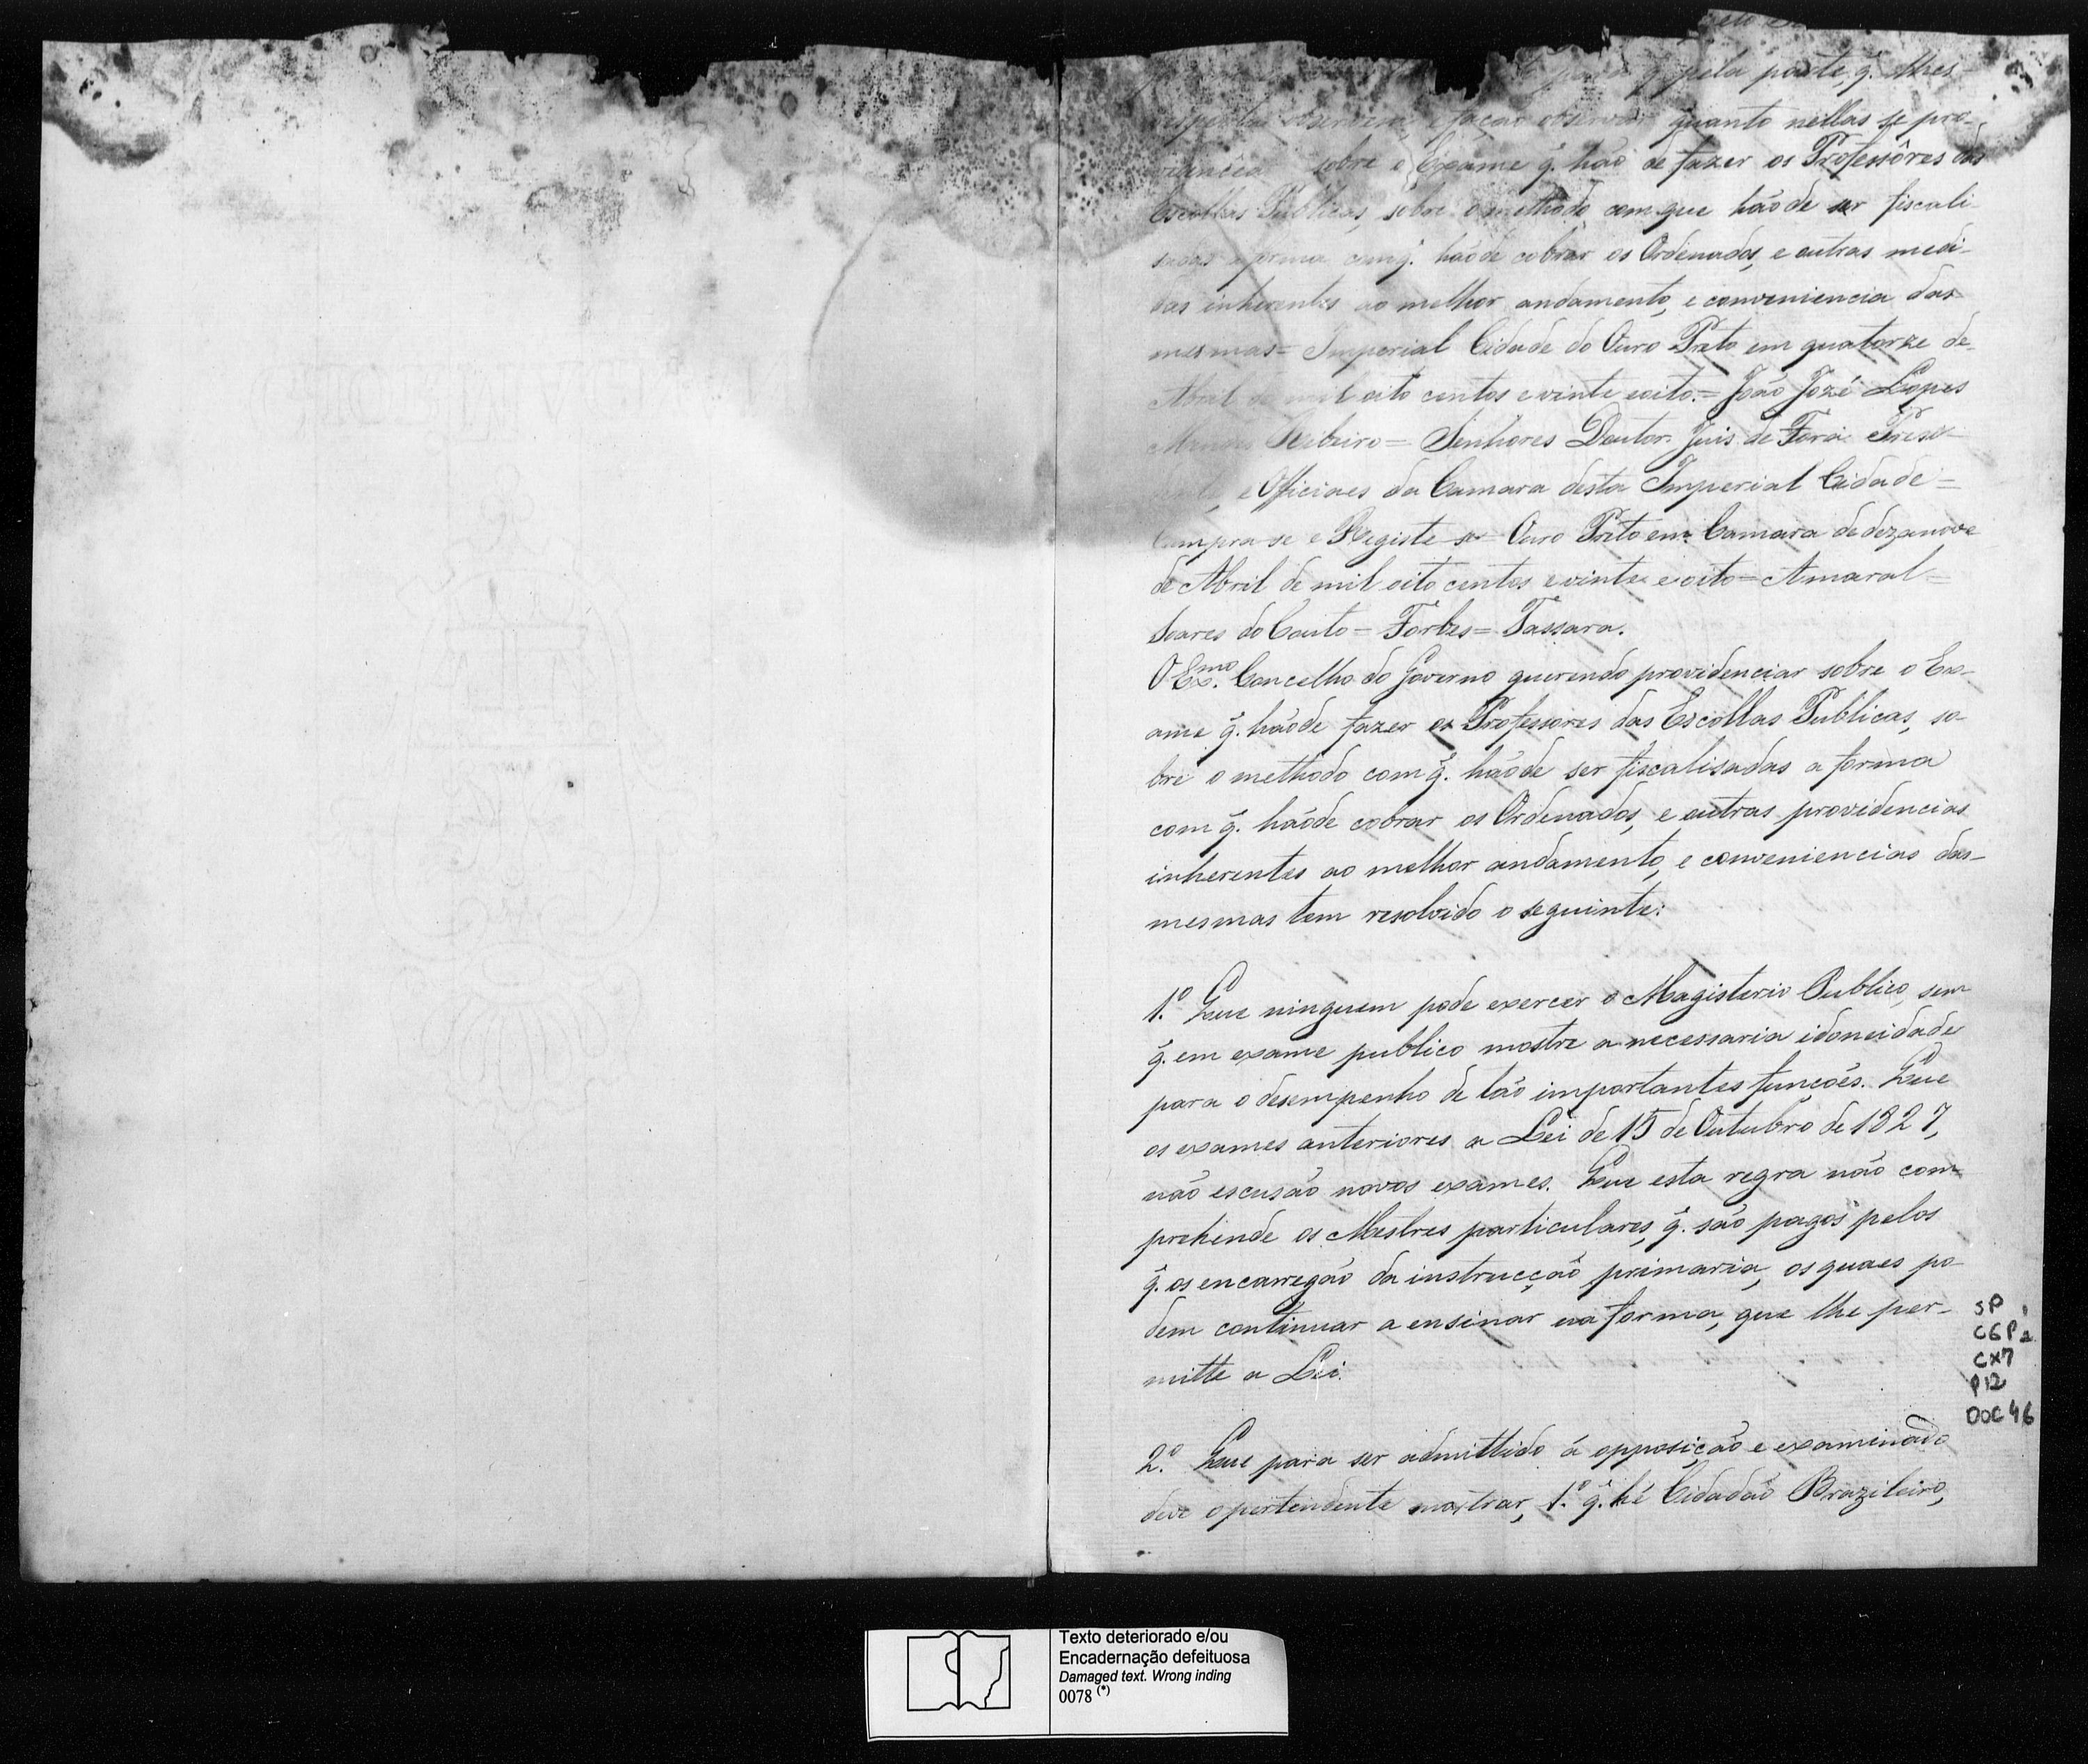 pela parte, q̃. lhes
observem, e fação observar quanto nellas se pro-
videncêa sobre o Exame q̃. hão de fazer os Professôres das
Escollas Publicas, sobre o methodo com que hãode ser fiscali-
sadas e forma com q̃. hãode cobrar os Ordenados, e outras medi-
das inherentes ao melhor andamento, e conveniencia das
mesmas= Imperial Cidade do Ouro Preto em quatorze de
Abril de mil oito centos e vinte eoito.= João Jozé Lopes
Mendes Ribeiro= Senhores Doutor Juis de Fora Presi-
dente, e Officiaes da Camara desta Imperial Cidade=
Cumpra-se e Registe-se= Ouro Preto em Camara de dezanove
de Abril de mil oito centos e vinte e oito= Amaral=
Soares do Couto= Forbes= Tassara.
O Ex.mo Concelho do Governo querendo providenciar sobre o Ex-
ame q̃. hãode fazer os Professores das Escollas Publicas, so-
bre o methodo com q̃. hãode ser fiscalisadas a forma
com q̃. hãode cobrar os Ordenados, e outras providencias
inherentes ao melhor andamento, e conveniencias das
mesmas tem resolvido o seguinte:
1.º Que ninguem pode exercer o Magisterio Publico, sem
q̃. em exame publico mostre a necessaria idoneidade
para o desempenho de tão importantes funcões. Que
os exames anteriores a Lei de 15 de Outubro de 1827,
não escusão novos exames. Que esta regra não com-
prehende os Mestres particulares, q̃. são pagos pelos
q̃. os encarregão da instrucção primaria, os quaes po-
dem continuar a ensinar na forma, que lhe per-
mitte a Lei.
2.º Que para ser admittido á opposição e examinado
deve o pertendente mostrar, 1.º q̃. hé Cidadão Brazileiro,
SP
CGP 1/2
CX7
P12
DOC 46
Texto deteriorado e/ou
Encadernação defeituosa
Damaged text. Wrong inding
0078 (*)